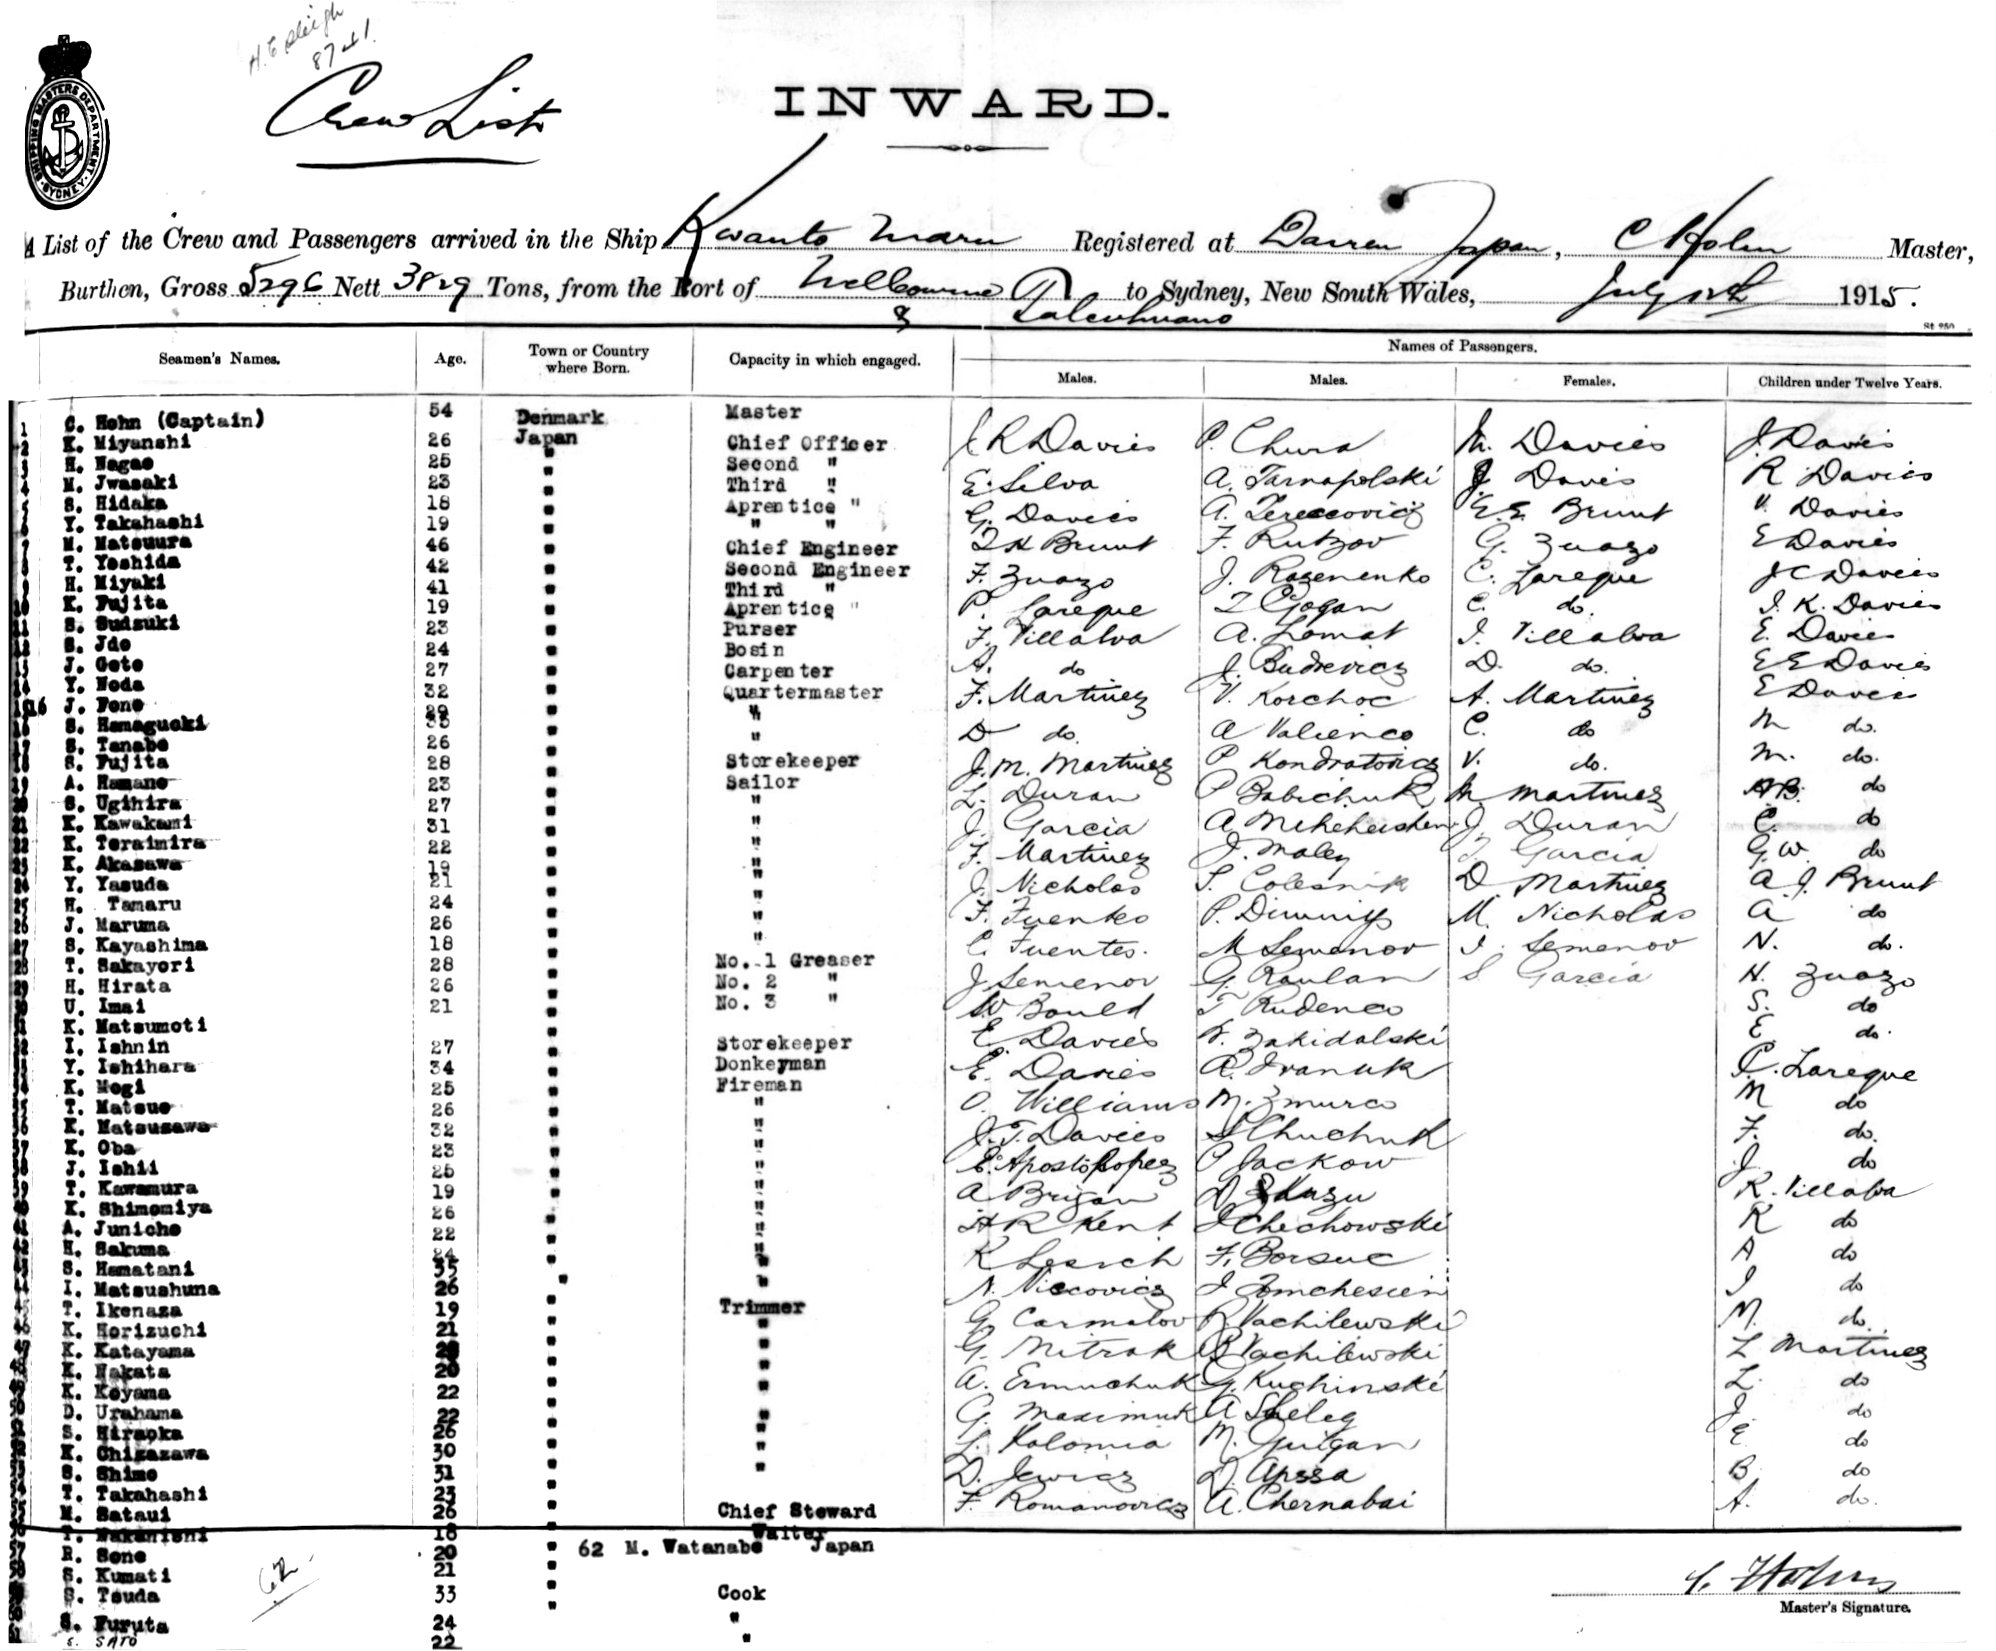 H. E. Sleigh
87 & 1.
Crew List
INWARD.
SHIPPING MASTERS DEPARTMENT. SYDNEY.
A List of the Crew and Passengers arrived in the Ship Kwanto Maru Registered at Darren Japan, C Holm Master,
Burthen, Gross 5296 Nett 3829 Tons, from the Port of Melbourne to Sydney, New South Wales, July 1915.
& Talcuhuano
Seamen's Names. Age. Town or Country where Born. Capacity in which engaged. Names of Passengers.
Males. Males. Females. Children under Twelve Years.
1 C. Hohn (Captain) 54 Denmark Master
2 K. Miyanshi 26 Japan Chief Officer J R Davies P. Chura M. Davies J. Davies
3 H. Nagao 25 " Second "
4 M. Jwasaki 23 " Third " E. Silva A. Tarnapolski J Davies R Davies
5 S. Hidaka 18 " Aprentice "
6 Y. Takahashi 19 " " " G. Davies A. Tereccovicz E. E. Brunt V. Davies
7 M. Matsuura 46 " Chief Engineer T H Brunt F. Rutzov G. Zuazo E Davies
8 T. Yoshida 42 " Second Engineer
9 H. Miyaki 41 " Third " F. Zuazo J. Razenenko C. Lareque J C Davies
10 K. Fujita 19 " Aprentice " P. Lareque T Gogan C. do. I. K. Davies
11 S. Sudzuki 23 " Purser F. Villalva A. Lomat I. Villalva E. Davies
12 S. Jdo 24 " Bosin
13 J. Goto 27 " Carpenter A. do J. Budrevicz D. do. E E Davies
14 Y. Noda 32 " Quartermaster F. Martinez V. Korchoc A. Martinez E Davies
15 16 J. Fono 29 " "
16 S. Hamaguchi 33 " " D do. A Valienco C. do M do.
17 S. Tanabe 26 "
18 S. Fujita 28 " Storekeeper J. M. Martinez P Kondratovicz V. do. M. do.
19 A. Hamano 23 " Sailor
20 S. Ugihira 27 " " L. Duran P Babichuk M Martinez B. do
21 K. Kawakami 31 " " J. Garcia A J. Duran C. do
22 K. Teraimira 22 " " F. Martinez J. Maley J. Garcia G. W. do
23 K. Akasawa 19 " "
24 Y. Yasuda 21 " " J. Nicholas S. Colesnik D Martinez A J. Brunt
25 H. Tamaru 24 " "
26 J. Maruma 26 " " F. Fuenko P. M. Nicholas A do
27 S. Kayashima 18 " " C. Fuentes. M Semenov I. Semenov N. do.
28 T. Sakayori 28 " No. 1 Greaser
29 H. Hirata 26 " No. 2 " J Semenov G. Raulan S Garcia H. Zuazo
30 U. Imai 21 " No. 3 " W Bould T Rudenco S. do
31 K. Matsumoti "
32 I. Ishnin 27 " Storekeeper E Davies W. Zakidalski E do.
33 Y. Ishihara 34 " Donkeyman E. Davies R. Ivanuk P. Lareque
34 K. Mogi 25 " Fireman
35 T. Matsuo 26 " " O. Williams M. Zmurco M do
36 K. Matsuzawa 32 " " J. T. Davies S Chuchuk F. do.
37 K. Oba 23 " "
38 J. Ishii 25 " " E. Apostopolopez P Jackow J. do
39 T. Kawamura 19 " " A Brigan R. Villalva
40 K. Shimomiya 26 " "
41 A. Juniche 22 " " A R Kent J Chechowski R do
42 H. Sakuma 24 " " K Lesich F. Borsuc A do
43 S. Hamatani 35 " "
44 I. Matsushuna 26 " " N. Viccovicz J Tomchesien I do
45 T. Ikenaza 19 " Trimmer
46 K. Horizuchi 21 " " G. Carmalov R Vachilewski M. do.
47 K. Katayama " " G. Mitrok B Vachilewski L Martinez
48 K. Nakata 20 " "
49 K. Koyama 22 " " A. Ermuchuk G. Kuchinski L. do
50 D. Urahama 22 " " G. Maximuk A Sheleg J. do
51 S. Hiraoka 26 " "
52 K. Chigazawa 30 " " L. Kolomia M. Guigan E do
53 S. Shimo 31 " " D. Jewicz D. Apssa B do
54 T. Takahashi 23 "
55 M. Sataui 26 " Chief Steward F. Romanovicz A. Chernabai A. do.
56 T. Nakanishi 18 " Waiter
57 R. Sone 20 " 62 M. Watanabe Japan
58 S. Kumati 21 "
59 S. Tsuda 33 " Cook
60 S. Furuta 24 "
61 S. SATO 22 "
62
C. Holm
Master's Signature.